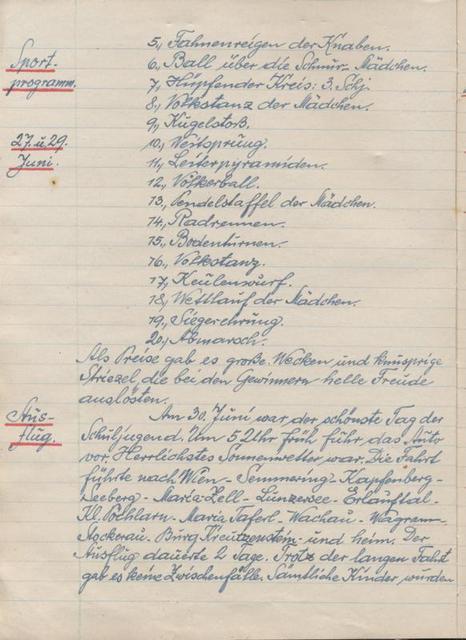 Sport-
programm.
27. u. 29.
Juni.
5., Fahnenreigen der Knaben.
6., Ball über die Schnur-Mädchen.
7., Hüpfender Kreis: 3. Schj.
8., Volkstanz der Mädchen.
9., Kugelstoß.
10., Weitsprung.
11., Leiterpyramiden.
12., Völkerball.
13., Pendelstaffel der Mädchen.
14., Radrennen.
15., Bodenturnen.
16., Volkstanz.
17., Keulenwurf.
18., Wettlauf der Mädchen.
19., Siegerehrung.
20., Abmarsch.
Als Preise gab es große Wecken und knusprige
Striezel, die bei den Gewinnern helle Freude
auslösten.
Aus-
flug.
Am 30. Juni war der schönste Tag der
Schuljugend. Um 5 Uhr früh fuhr das Auto
vor. Herrlichstes Sonnenwetter war. Die Fahrt
führte nach Wien - Semmering - Kapfenberg -
Seeberg - Maria-Zell - Lunzersee - Erlauftal -
Kl. Pöchlarn - Maria Taferl - Wachau - Wagram -
Stockerau - Burg Kreuzenstein - und heim. Der
Ausflug dauerte 2 Tage. Trotz der langen Fahrt
gab es keine Zwischenfälle. Sämtliche Kinder wurden